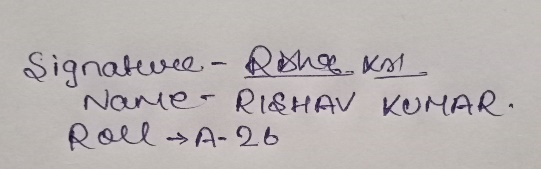 Signature - Rishav Kr
Name - RISHAV KUMAR.
Roll → A-26